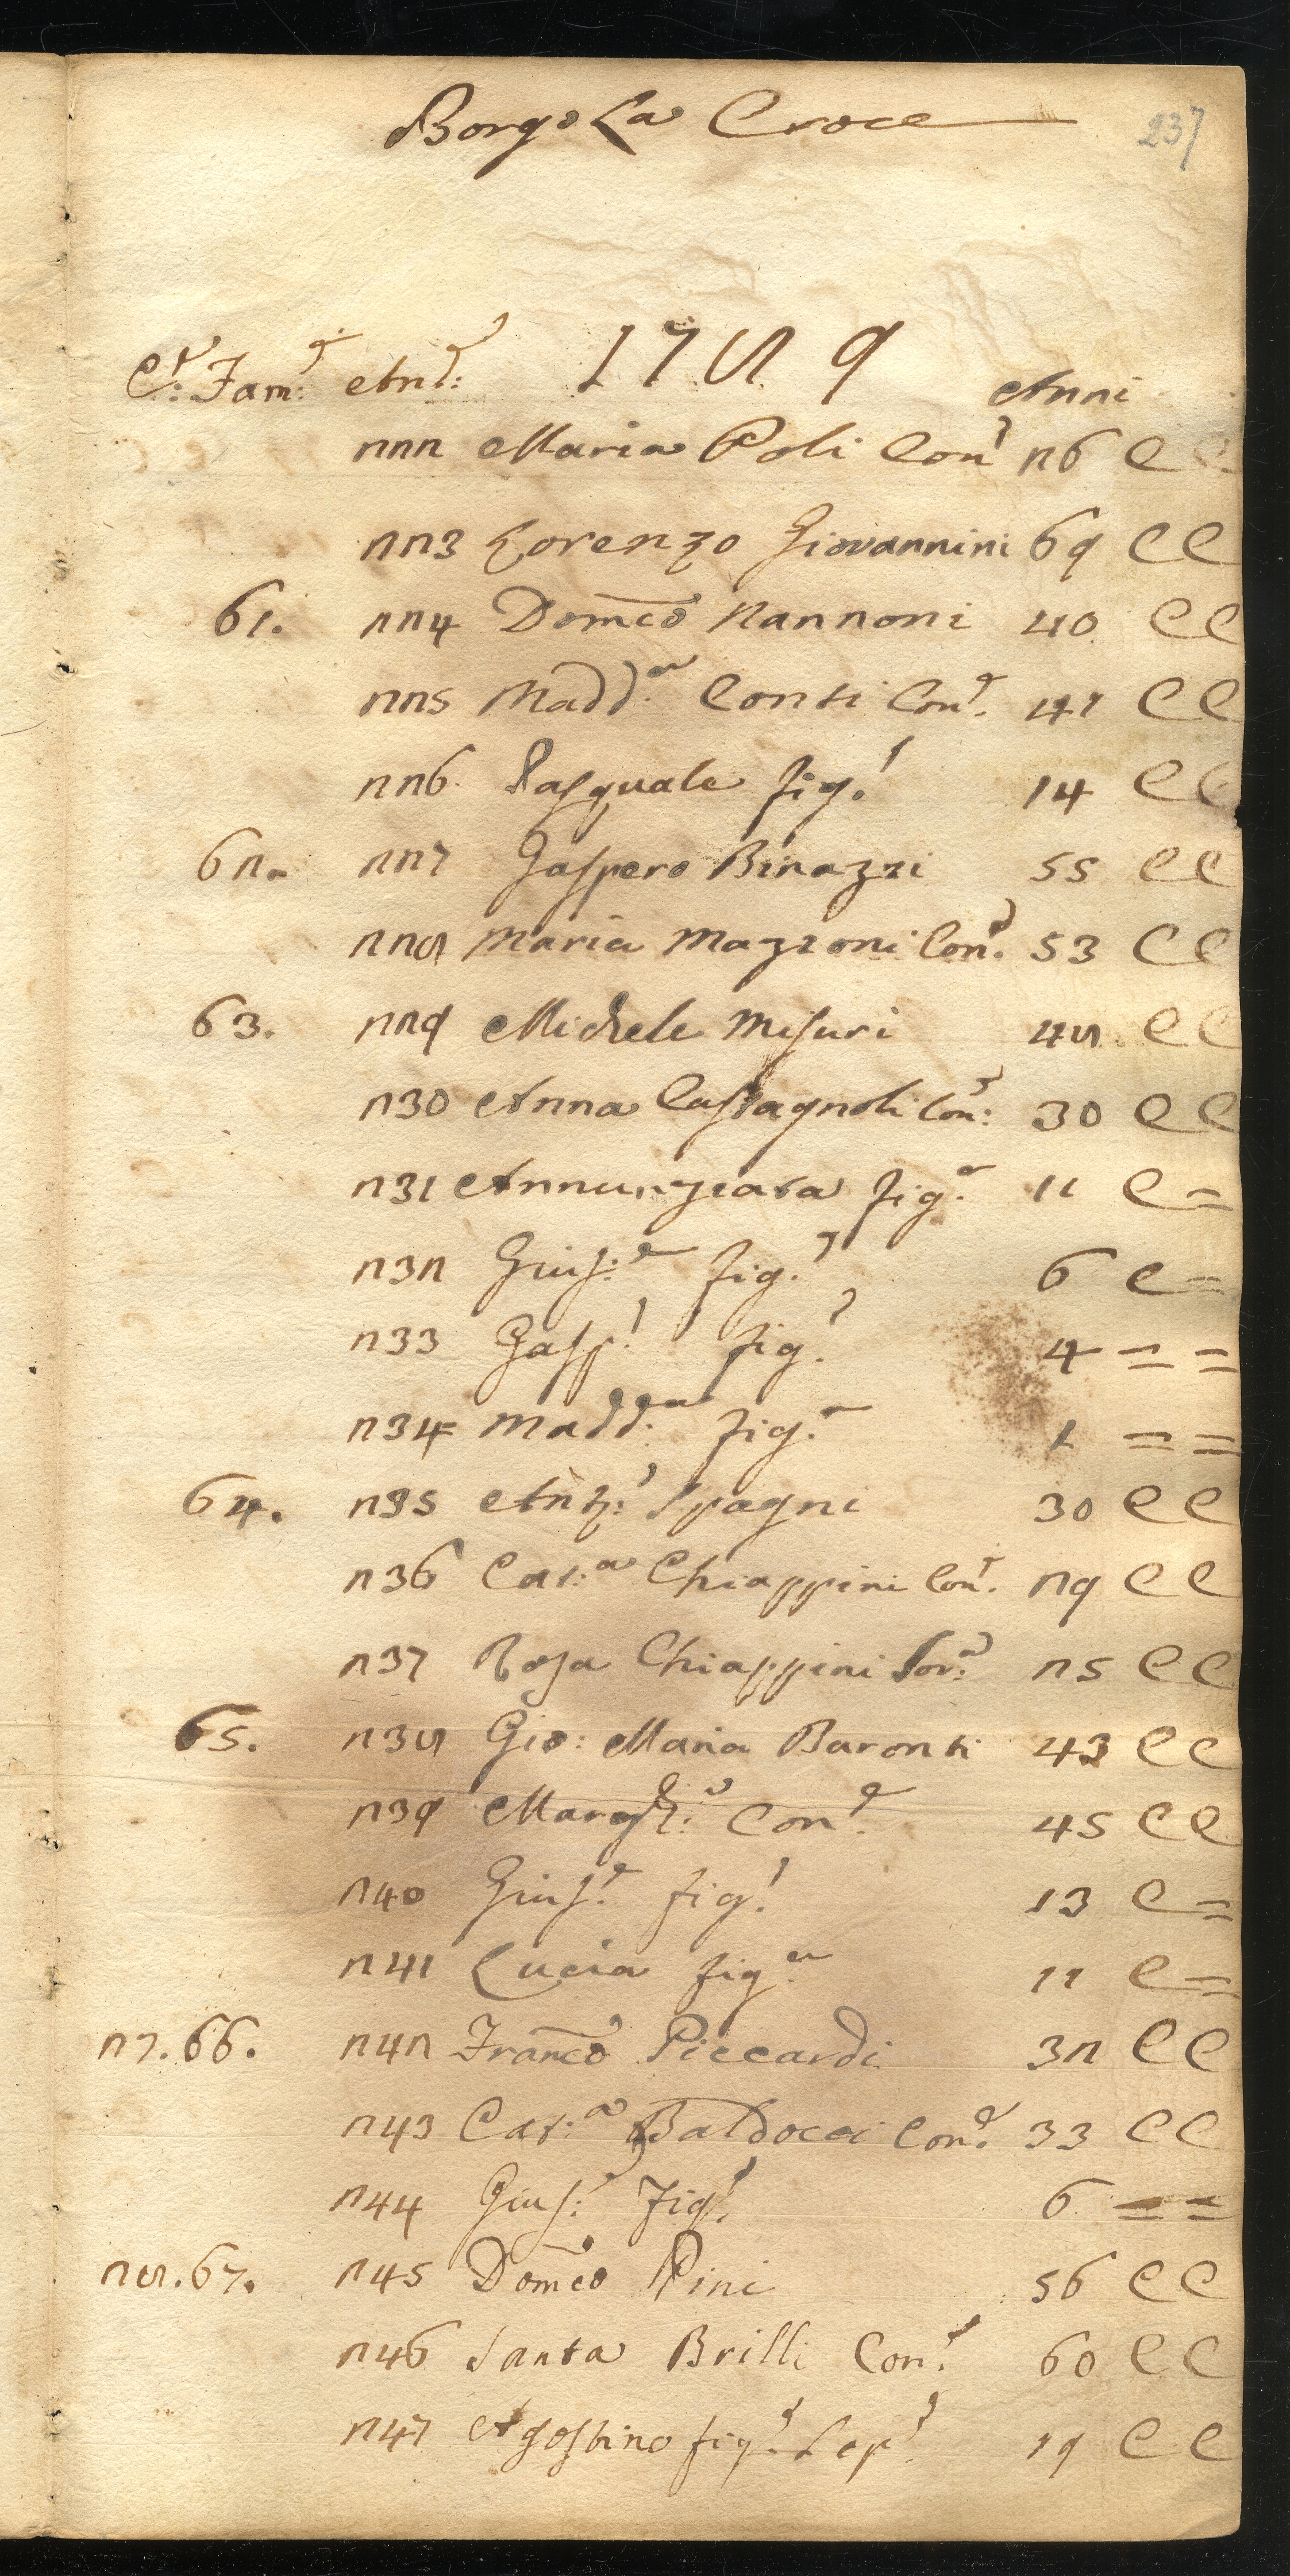 Borgo La Croce 237
C.e: Fam.e: An.e: 1789 Anni
222 Maria Poli Con.e 26 C C
223 Lorenzo Giovannini 69 C C
61. 224 Domco Nannoni 40 C C
225 Madd.a Conti Con.e 41 C C
226 Pasquale fig.o 14 C C
62. 227 Gaspero Binazzi 55 C C
228 Maria Mazzoni Con.e 53 C C
63. 229 Michele Misuri 48 C C
230 Anna Castagnoli Con.e: 30 C C
231 Annunziata fig.a 11 C =
232 Gius.e fig.o 6 C =
233 Gasp.o fig.o 4 = =
234 Madd.a fig.a 1 = =
64. 235 Ant.o: Spagni 30 C C
236 Cat.a Chiappini Con.e 29 C C
237 Rosa Chiappini Sor.a 25 C C
65. 238 Gio: Maria Baronti 43 C C
239 Margh.a Con.e 45 C C
240 Gius.e fig.o 13 C =
241 Lucia fig.a 11 C =
27. 66. 242 Franco Piccardi 32 C C
243 Cat.a Baldocci Con.e 33 C C
244 Gius.e fig.o 6 = =
28. 67. 245 Domco Pini 56 C C
246 Santa Brilli Con.e 60 C C
247 Agostino fig.o 19 C C